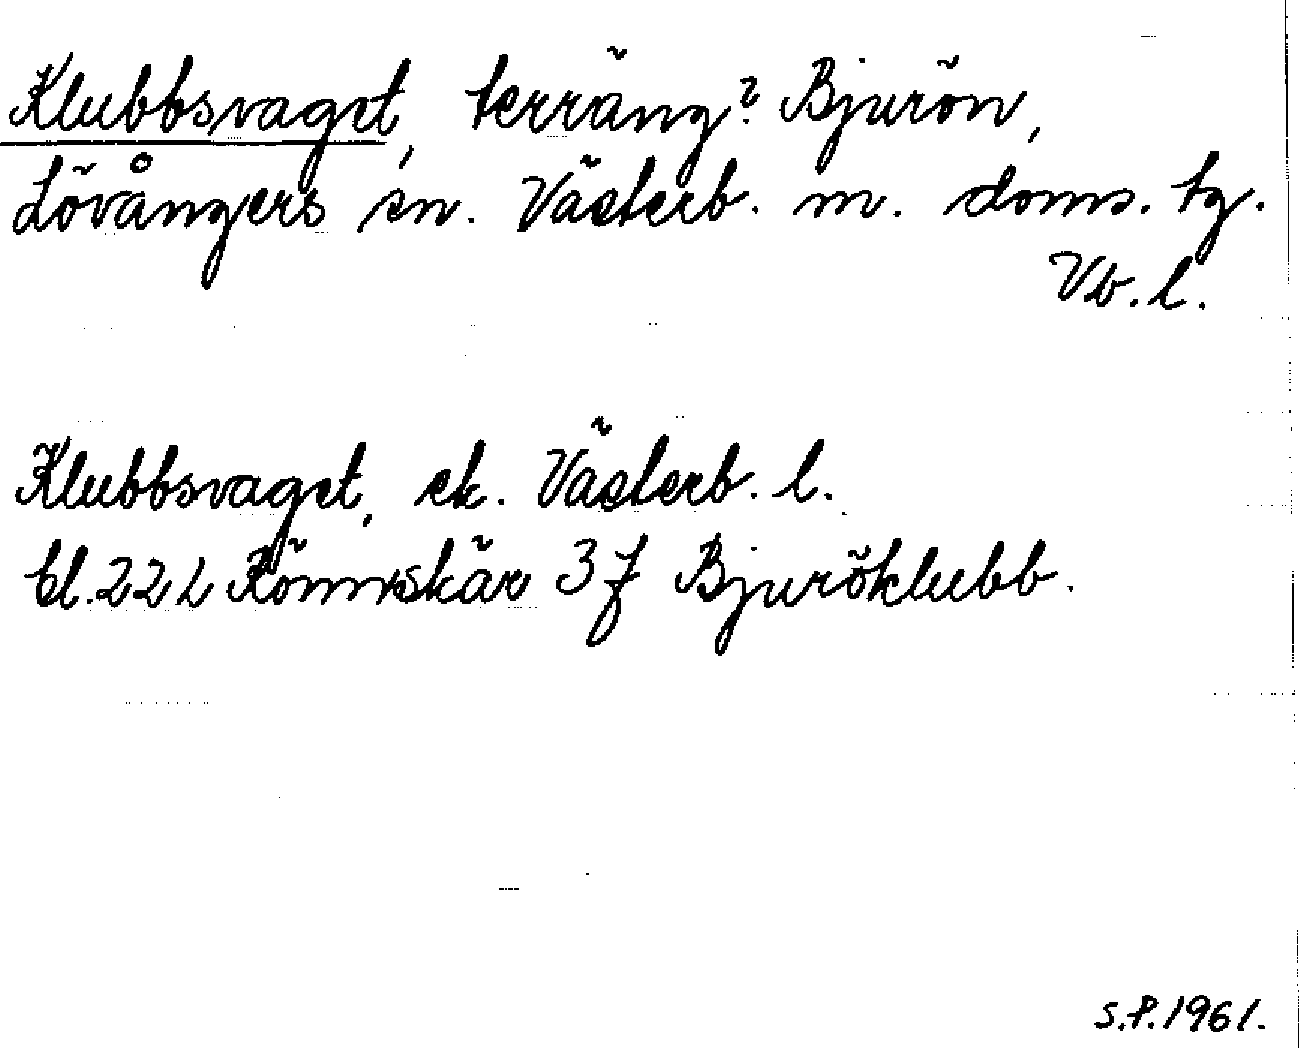 Klubbsvaget, terräng? Bjurön,
Lövångers sn. Västerb. m. doms. tg.
Vb. l.
Klubbsvaget, ek. Västerb. l.
bl. 22 L Rönnskär 3 f Bjuröklubb.
S.P. 1961.